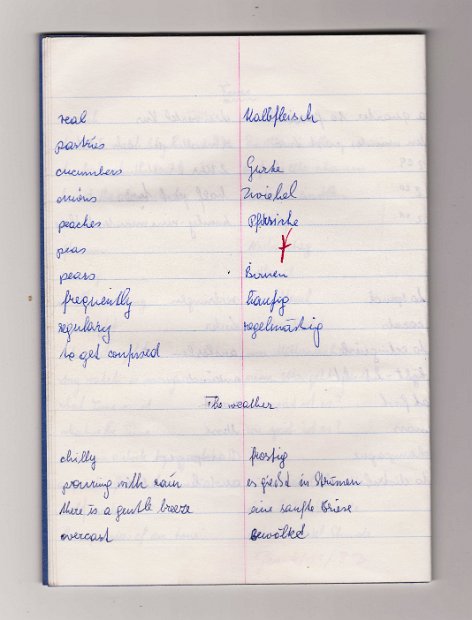 veal Kalbfleisch
pastries
cucumbers Gurke
onions Zwiebel
peaches Pfirsiche
peas
pears Birnen
frequently häufig
regulary regelmäßig
to get confused
The weather
chilly frostig
pouring with rain es gießt in Strömen
there is a gentle breeze eine sanfte Briese
overcast bewölkt